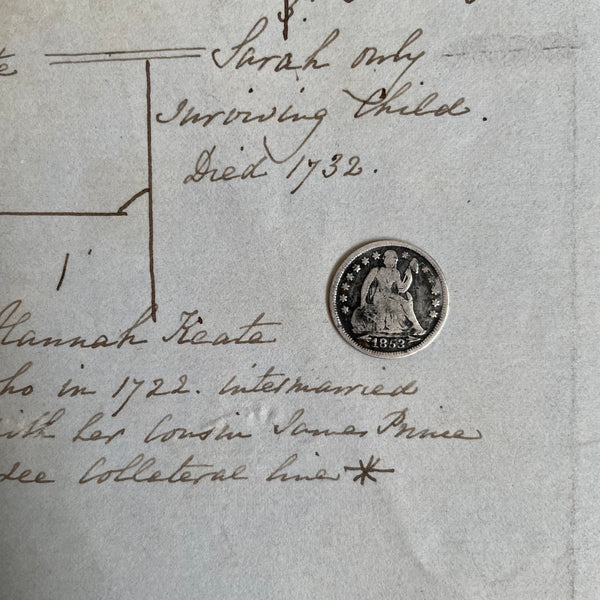 Sarah only
Surviving Child.
Died 1732.
1
Hannah Keate
who in 1722. intermarried
with her Cousin James Prince
see Collateral line *
1853